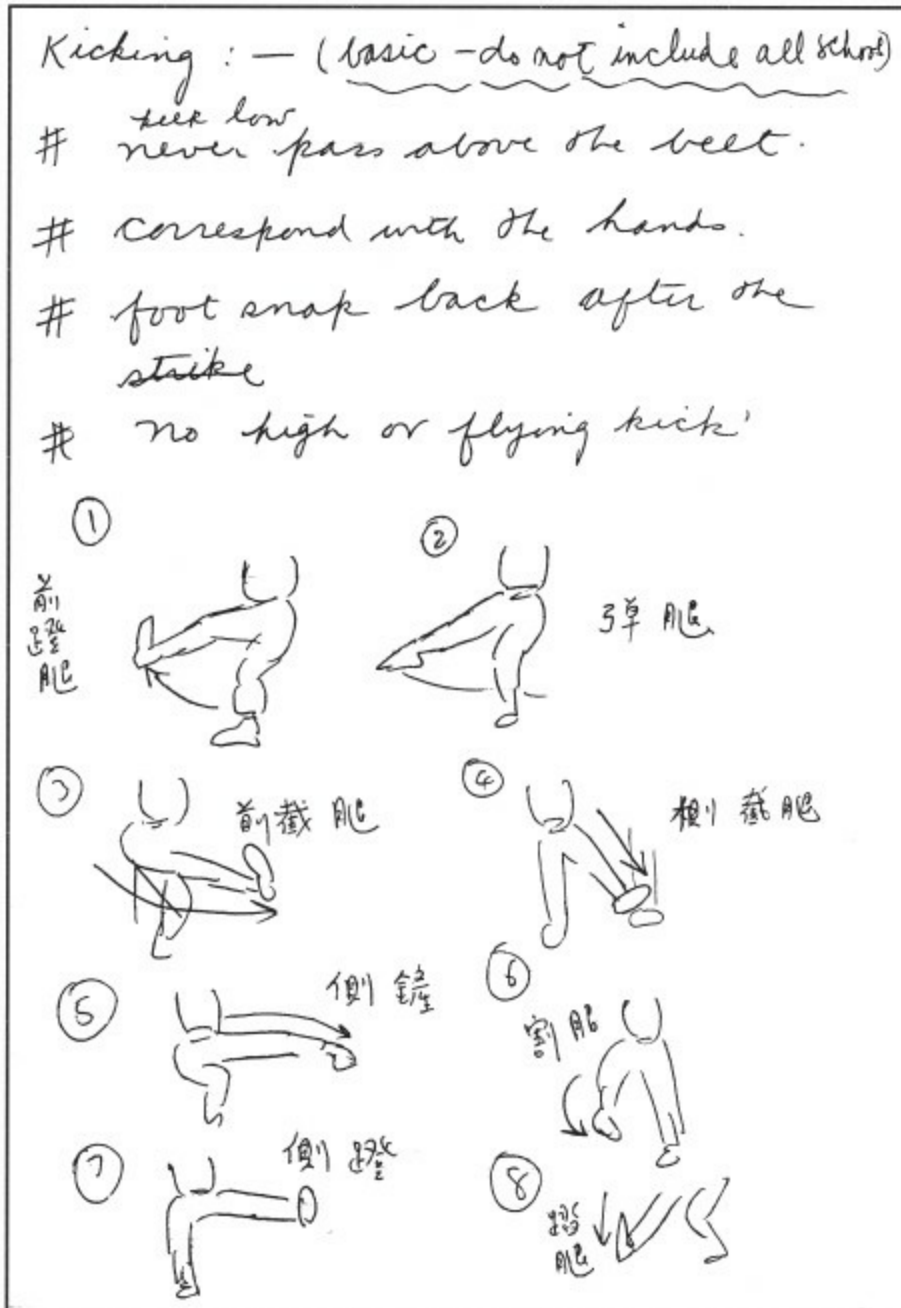 Kicking : — (basic - do not include all school)
keep low
# never pass above the belt.
# correspond with the hands.
# foot snap back after the
strike
# no high or flying kick'
①
前蹬腿
②
弹腿
③
前截腿
④
側截腿
⑤
側鏟
⑥
割腿
⑦
側蹬
⑧
踏腿